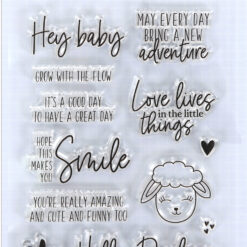 Hey baby
MAY EVERY DAY
BRING A NEW
adventure
GROW WITH THE FLOW
IT'S A GOOD DAY
TO HAVE A GREAT DAY
Love lives
in the little
things
HOPE
THIS
MAKES
YOU
Smile
YOU'RE REALLY AMAZING
AND CUTE AND FUNNY TOO
Hello